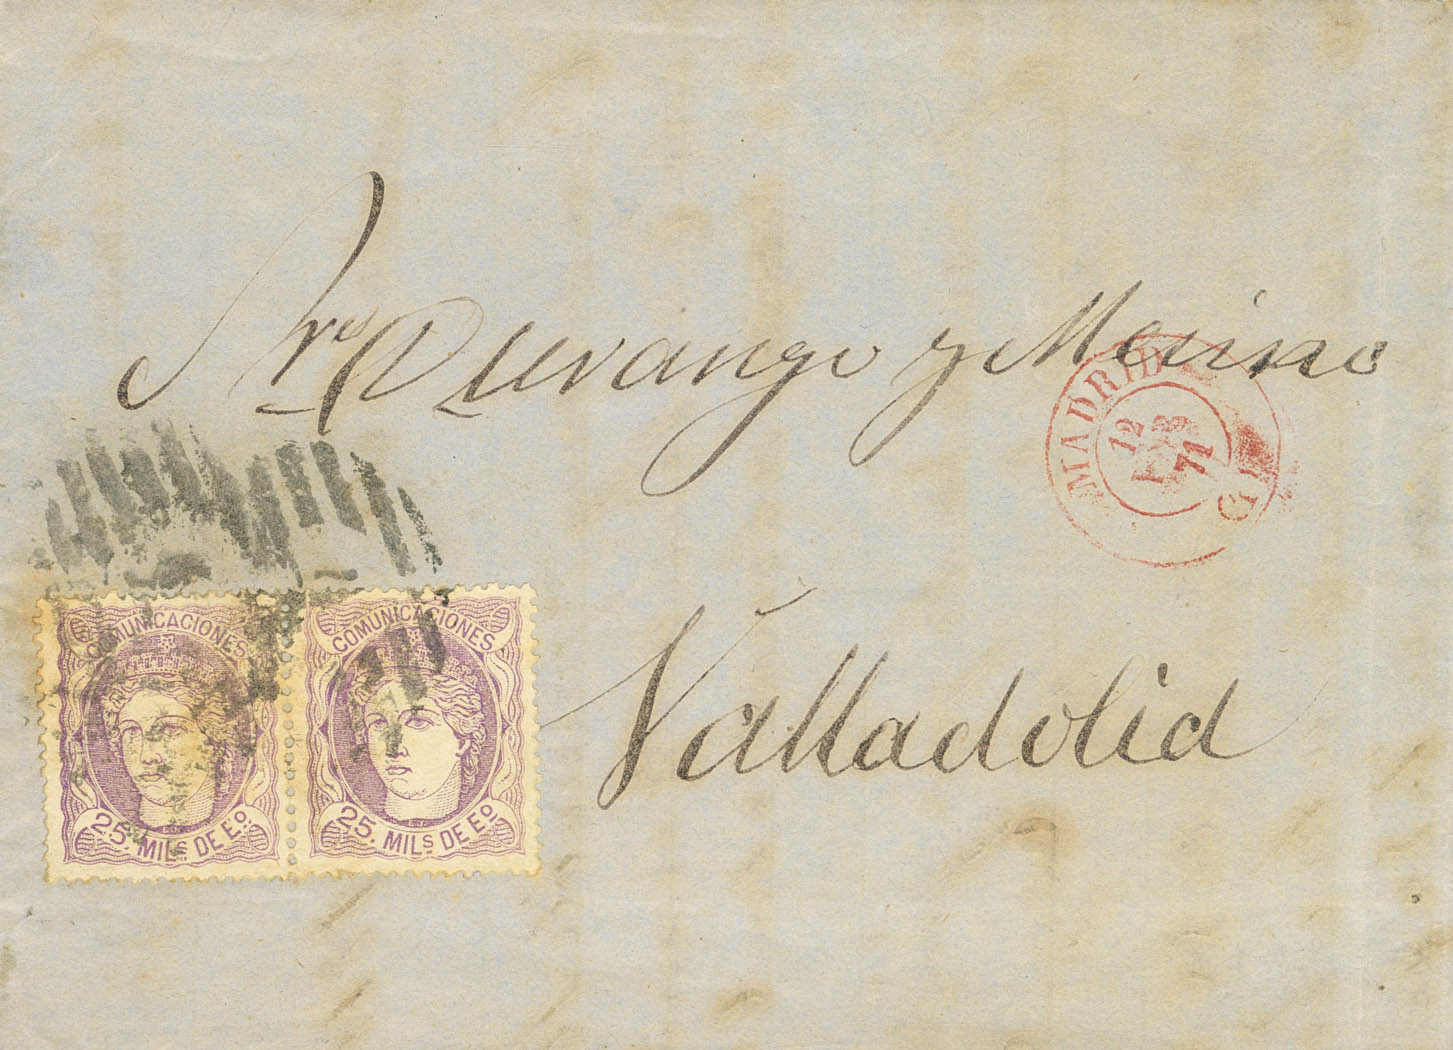 Sres Durango y Merino
MADRID
12
71
Valladolid
COMUNICACIONES
25. MILS DE Eo.
COMUNICACIONES
25. MILS DE Eo.